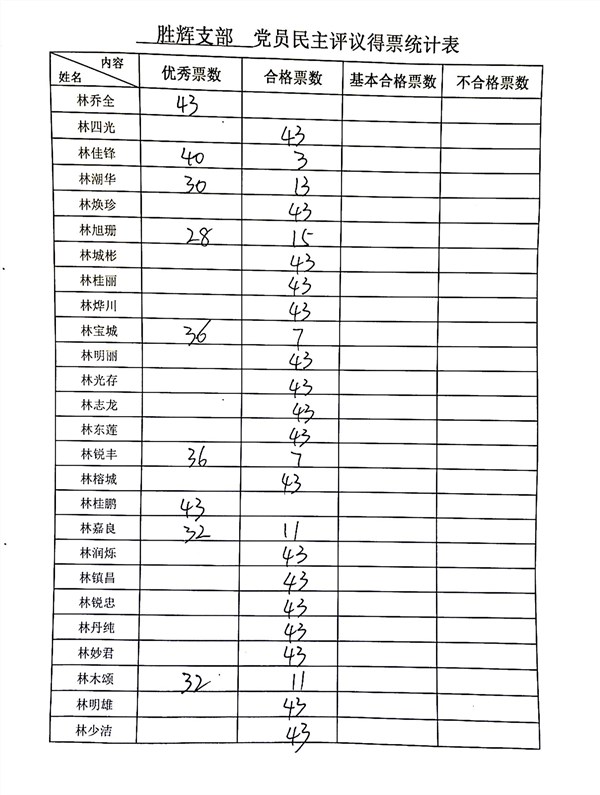 胜辉支部 党员民主评议得票统计表
内容 姓名 优秀票数 合格票数 基本合格票数 不合格票数
林乔全 43
林四光 43
林佳锋 40 3
林潮华 30 13
林焕珍 43
林旭珊 28 15
林城彬 43
林桂丽 43
林烨川 43
林宝城 36 7
林明丽 43
林光存 43
林志龙 43
林东莲 43
林锐丰 36 7
林榕城 43
林桂鹏 43
林嘉良 32 11
林润烁 43
林镇昌 43
林锐忠 43
林丹纯 43
林妙君 43
林木颂 32 11
林明雄 43
林少洁 43